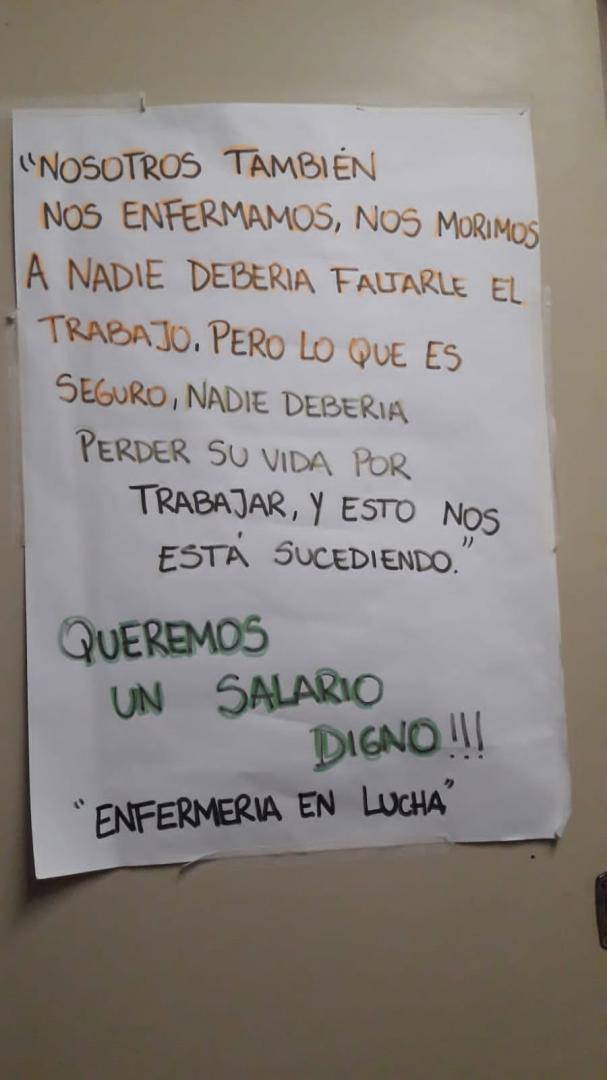 "NOSOTROS TAMBIÉN
NOS ENFERMAMOS, NOS MORIMOS
A NADIE DEBERIA FALTARLE EL
TRABAJO. PERO LO QUE ES
SEGURO, NADIE DEBERIA
PERDER SU VIDA POR
TRABAJAR, Y ESTO NOS
ESTÁ SUCEDIENDO."
QUEREMOS
UN SALARIO
DIGNO!!!
"ENFERMERIA EN LUCHA"